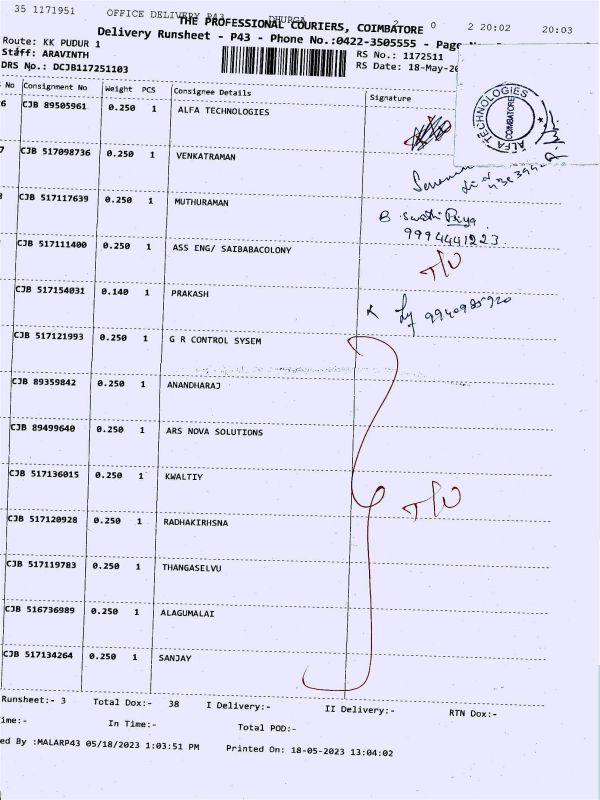 35 1171951 OFFICE DELIVERY P43 DHURGA 2 0 2 20:02 20:03
THE PROFESSIONAL COURIERS, COIMBATORE
Delivery Runsheet - P43 - Phone No.:0422-3505555 - Page
Route: KK PUDUR 1 RS No.: 1172511
Staff: ARAVINTH RS Date: 18-May-20
DRS No.: DCJB117251103
No Consignment No Weight PCS Consignee Details Signature
ALFA TECHNOLOGIES
COIMBATORE
6 CJB 89505961 0.250 1 ALFA TECHNOLOGIES
7 CJB 517098736 0.250 1 VENKATRAMAN
CJB 517117639 0.250 1 MUTHURAMAN B Swathi Priya
9994441223
CJB 517111400 0.250 1 ASS ENG/ SAIBABACOLONY T/O
CJB 517154031 0.140 1 PRAKASH
CJB 517121993 0.250 1 G R CONTROL SYSEM
CJB 89359842 0.250 1 ANANDHARAJ
CJB 89499640 0.250 1 ARS NOVA SOLUTIONS
CJB 517136015 0.250 1 KWALTIY T/O
CJB 517120928 0.250 1 RADHAKIRHSNA
CJB 517119783 0.250 1 THANGASELVU
CJB 516736989 0.250 1 ALAGUMALAI
CJB 517134264 0.250 1 SANJAY
Runsheet:- 3 Total Dox:- 38 I Delivery:- II Delivery:- RTN Dox:-
ime:- In Time:- Total POD:-
ed By :MALARP43 05/18/2023 1:03:51 PM Printed On: 18-05-2023 13:04:02